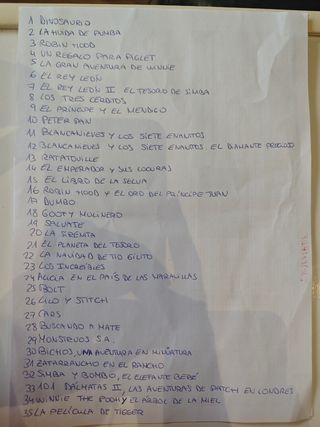 1 DINOSAURIO
2 LA HUIDA DE PUMBA
3 ROBIN HOOD
4 UN REGALO PARA PIGLET
5 LA GRAN AVENTURA DE WINNIE
6 EL REY LEÓN
7 EL REY LEÓN II EL TESORO DE SIMBA
8 LOS TRES CERDITOS
9 EL PRÍNCIPE Y EL MENDIGO
10 PETER PAN
11 BLANCANIEVES Y LOS SIETE ENANITOS
12 BLANCANIEVES Y LOS SIETE ENANITOS. EL DIAMANTE PRECIOSO
13 RATATOUILLE
14 EL EMPERADOR Y SUS LOCURAS
15 EL LIBRO DE LA SELVA
16 ROBIN HOOD Y EL ORO DEL PRÍNCIPE JUAN
17 DUMBO
18 GOOFY MOLINERO
19 SALVATE
20 LA SIRENITA
21 EL PLANETA DEL TESORO
22 LA NAVIDAD DE TIO GILITO
23 LOS INCREÍBLES
24 ALICIA EN EL PAÍS DE LAS MARAVILLAS
25 BOLT
26 LILO Y STITCH
27 CARS
28 BUSCANDO A MATE
29 MONSTRUOS S.A.
30 BICHOS, UNA AVENTURA EN MINIATURA
31 ZAFARRANCHO EN EL RANCHO
32 SIMBA Y BOMBO, EL ELEFANTE BEBÉ
33 101 DÁLMATAS II, LAS AVENTURAS DE PATCH EN LONDRES
34 WINNIE THE POOH Y EL ÁRBOL DE LA MIEL
35 LA PELÍCULA DE TIGGER